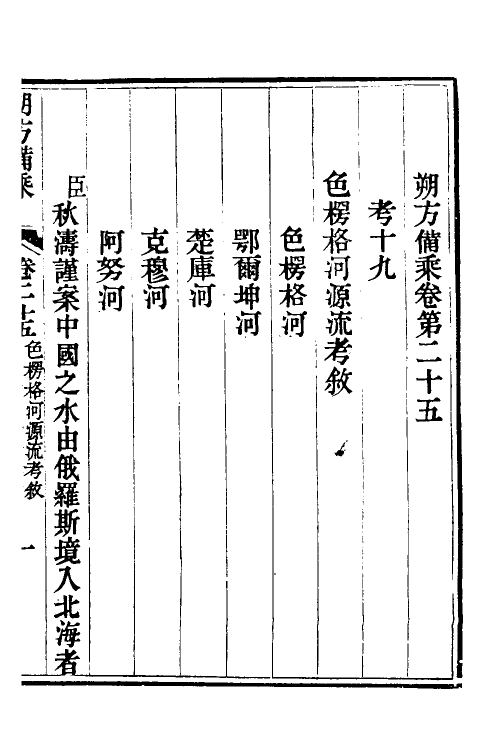 朔方備乘卷第二十五
考十九
色楞格河源流考敘
色楞格河
鄂爾坤河
楚庫河
克穆河
阿努河
臣秋濤謹案中國之水由俄羅斯境入北海者
朔方備乘
卷二十五
色楞格河源流考敘
一